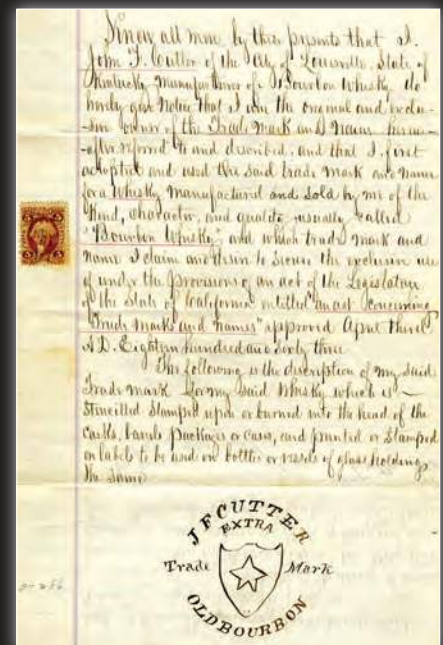 Know all men by these presents that I.
John F. Cutter of the City of Louisville, State of
Kentucky Manufacturer of Bourbon Whisky do
hereby give Notice that I am the original and exclu-
-sive owner of the Trade Mark and Name herein-
-after referred to and described; and that I first
adopted and used the said trade mark and name
for a Whisky Manufactured and Sold by me of the
Kind, character, and quality usually called
"Bourbon Whisky" and which trade mark and
name I claim and desire to secure the exclusive use
of under the provisions of an act of the Legislature
of the State of California entitled "an act concerning
Trade marks and names" approved April third
A.D. Eighteen hundred and sixty three
The following is the description of my said
Trade mark for my said Whisky which is —
Stencilled Stamped upon or burned into the head of the
casks, barrels packages or cases, and printed or stamped
on labels to be used on bottles or vessels of glass holding
the same
J F CUTTER
EXTRA
Trade Mark
OLD BOURBON